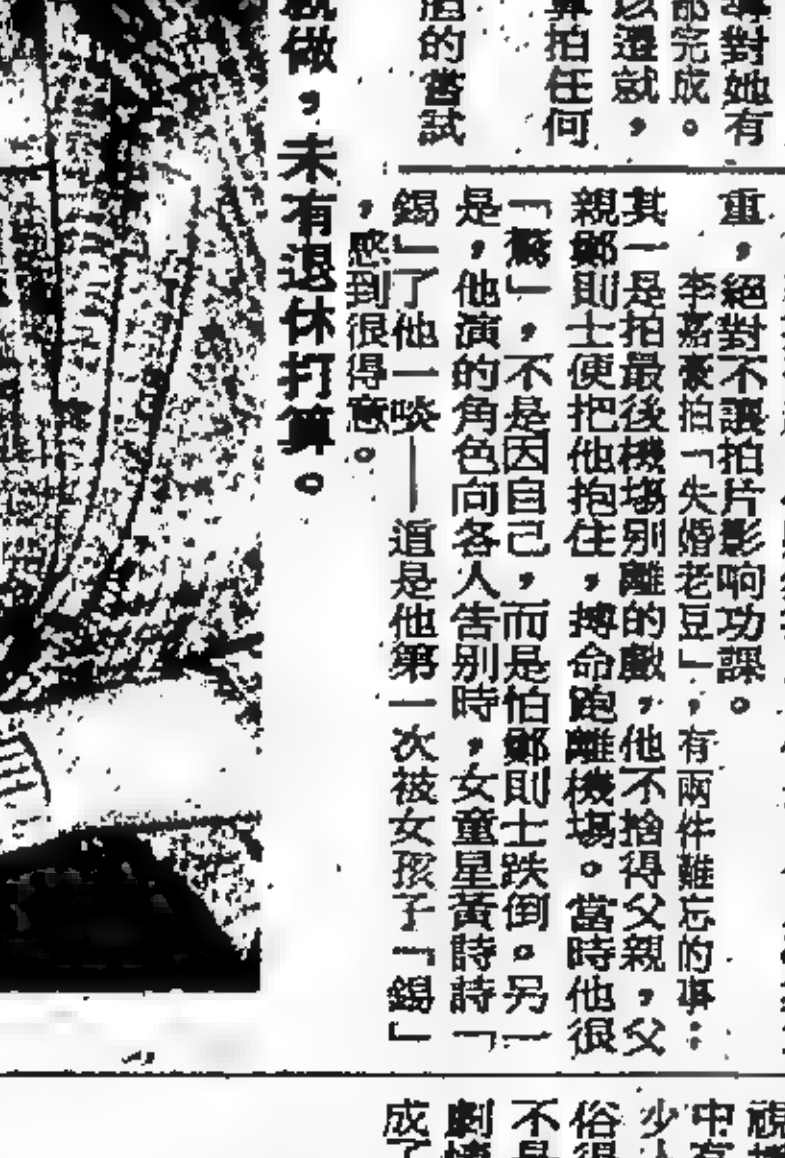 對她有
都完成。
遷就，
算拍任何
的嘗試
就做，未有退休打算。
重，絕對不讓拍片影响功課。
李嘉豪拍「失婚老豆」，有兩件難忘的事：
其一是拍最後機場別離的戲，他不捨得父親，父
親鄭則士便把他抱住，搏命跑離機場。當時他很
「驚」，不是因自己，而是怕鄭則士跌倒。另一
是，他演的角色向各人告別時，女童星黃詩詩「
錫」了他一啖——這是他第一次被女孩子「錫」
，感到很得意。
視
中有
少
俗得
不是
劇情
成了